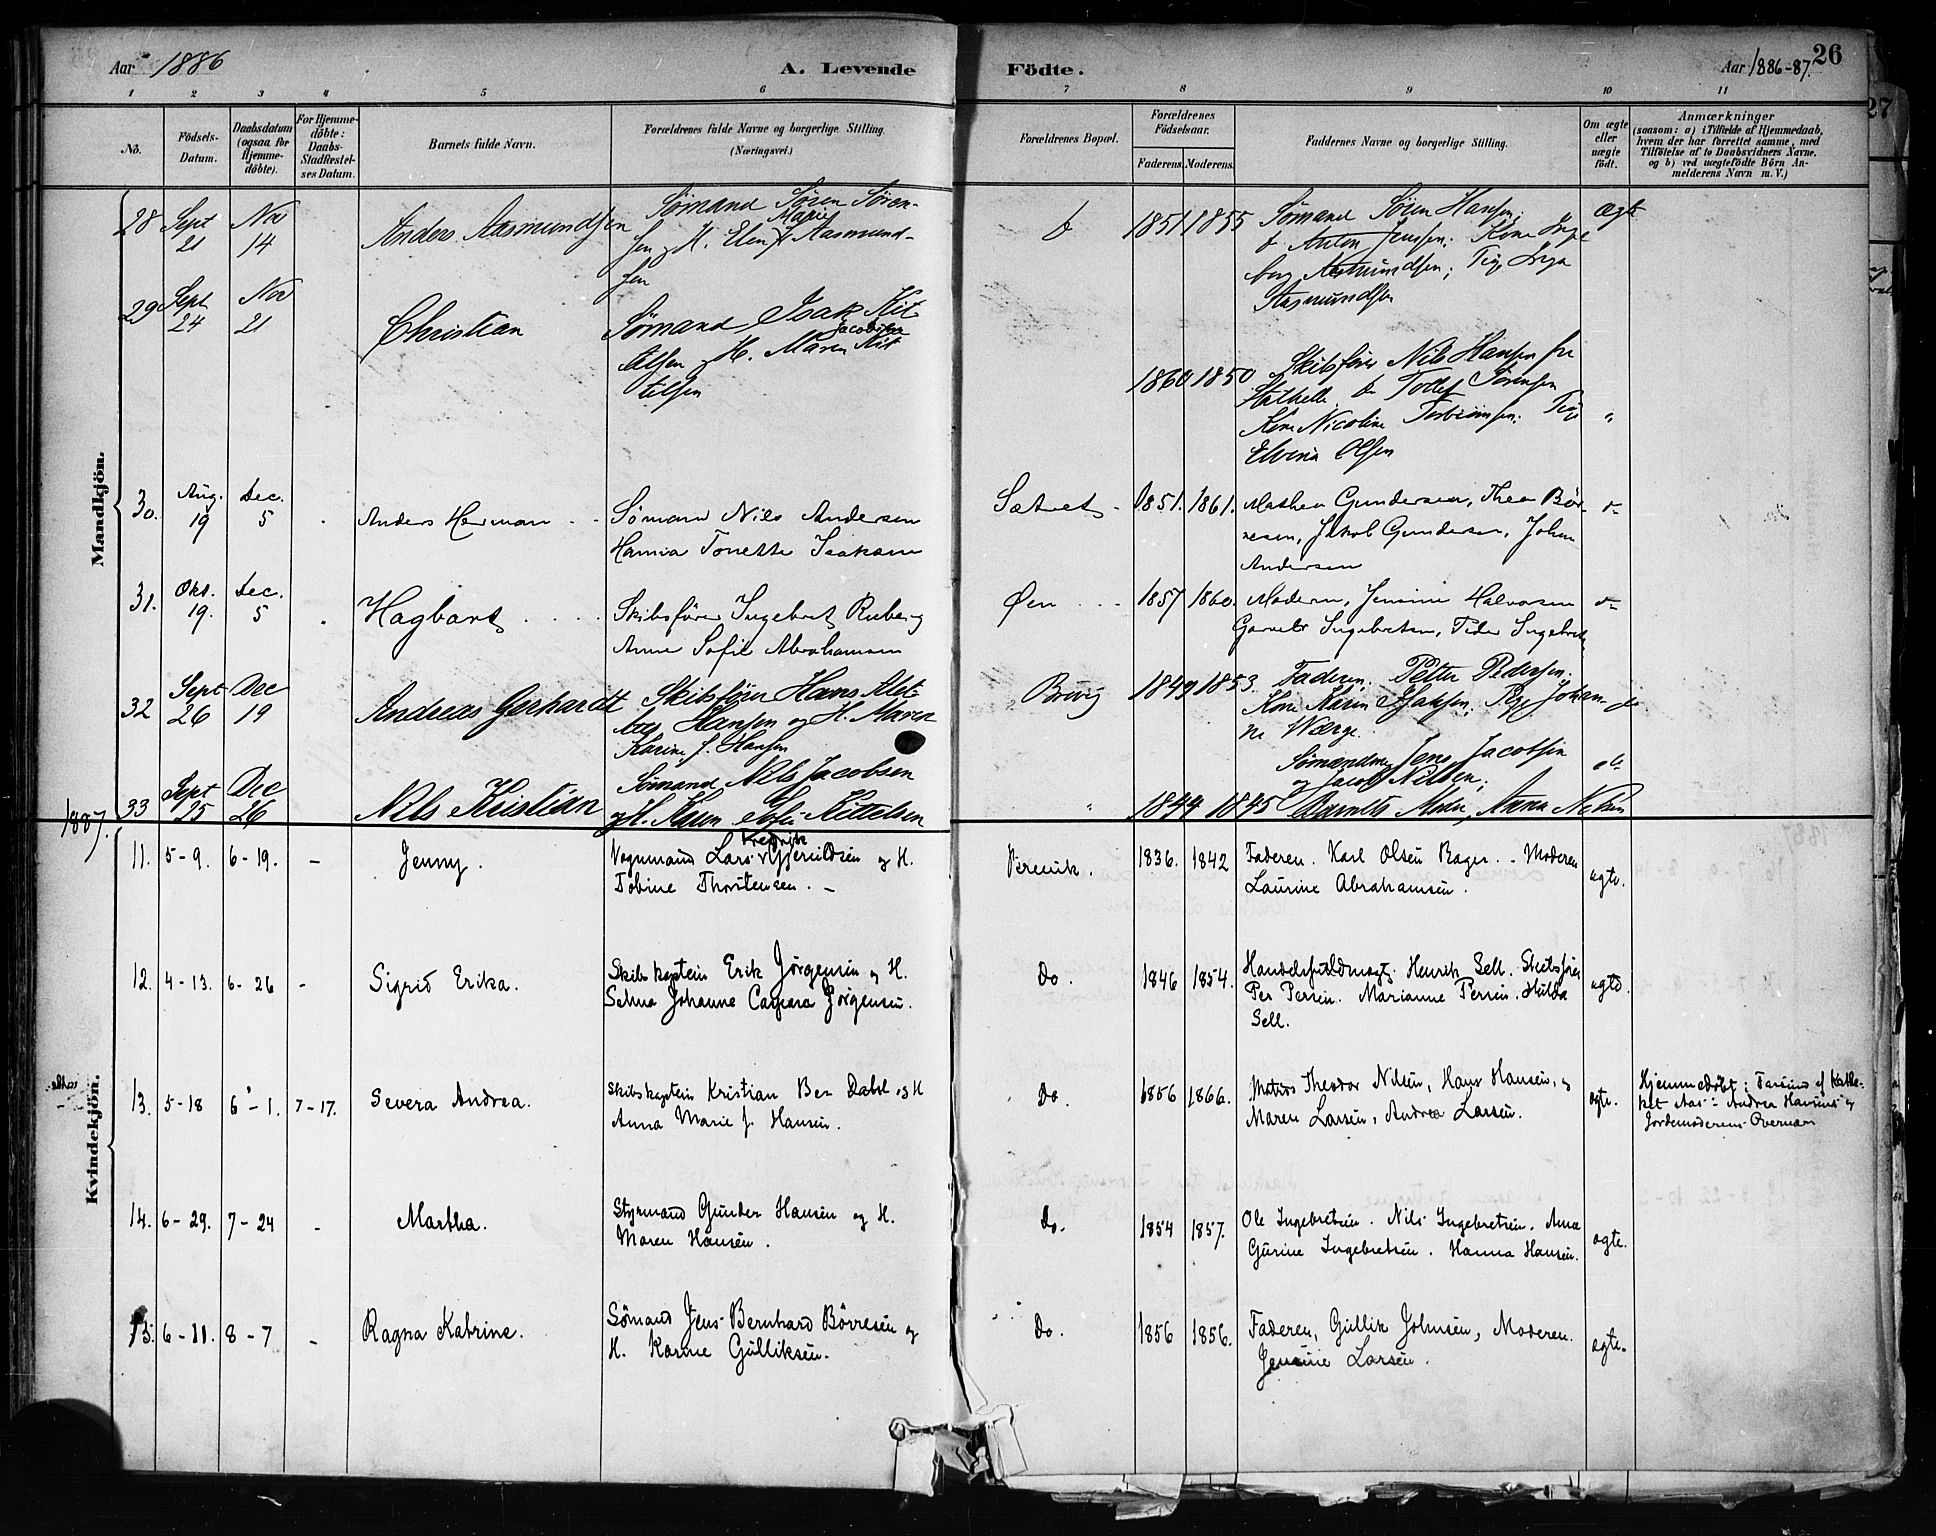 Aar 1886
A. Levende
Födte.
Aar 1886-87.
26
27
1 2 3 4 5 6 7 8 9 10 11
No.
Födsels-Datum.
Daabsdatum (ogsaa for Hjemmedöbte).
For Hjemmedöbte: Daabs-Stadfæstelses Datum.
Barnets fulde Navn.
Forældrenes fulde Navne og borgerlige Stilling.
(Næringsvei.)
Forældrenes Bopæl.
Forældrenes Födselsaar.
Faderens. Moderens.
Faddernes Navne og borgerlige Stilling.
Om ægte eller uægte födt.
Anmærkninger
(saasom: a) i Tilfælde af Hjemmedaab, hvem der har forrettet samme, med Tilföielse af to Daabsvidners Navne, og b) ved uægtefödte Börn Anmelderens Navn m. V.)
Mandkjön.
28 Sept 21 Nov 14 Anders Aasmundsen
Sømand Søren Søren-
sen og H. Elen Marie f. Aasmund-
sen
1851 1855
Sømand Søren Hansen,
Anton Jensen. Kone Inge
borg Aasmundsen; Pige Inga
Aasmundsen
Ægte
29 Sept 24 Nov 21 Christian
Sømand Isak Kit-
telsen og H. Maren Jacobine Kit
telsen
1860 1850
Skibsfører Nils Hansen fra
Stathelle, Tollef Sørensen
Kone Nicoline Torbiørnsen. Pige
Elvina Olsen
"
30. Aug. 19 Dec. 5 Anders Herman
Sømand Nils Andersen
Hanna Tonette Isaksen
Sætret 1851. 1861.
Mathea Gundersen, Thea Bør-
resen, Jakob Gundersen, Johan
Andersen
31. Okt. 19. Dec. 5 Hagbart
Skibsfører Ingebret Ruberg
Anne Sofie Abrahamsen
Øen 1857 1860.
Moderen, Jensine Halvorsen
Ingebretsen, Peder Ingebretsen
32 Sept 26 Dec 19 Andreas Gerhardt
Skibsfører Hans
Hansen og H. Maren
Karine f. Hansen
Brevig 1849 1853.
Faderen. Petter Pedersen.
Kone Karen Isaksen. Pige Johan-
ne Wærge.
do
33 Sept 25 Dec 26 Nils Kristian
Sømand Nils Jacobsen
og H. Karen Sofie Kittelsen
" 1844 1845
Sømændene Jens Jacobsen
og Jacob Nilsen;
Barnets Moder, Anna Nilsen
do
1887.
Kvindekjön.
11. 5-9. 6-19. - Jenny.
Vognmand Lars Fredrik Gjeruldsen og H.
Tobine Thorstensen. -
Brevik. 1836. 1842
Faderen. Karl Olsen Bager. - Moderen
Laurine Abrahamsen.
ægte.
12. 4-13. 6-26 - Sigrid Erika.
Skibskaptein Erik Jörgensen og H.
Selma Johanne Caspara Jörgensen.
Do. 1846 1854.
Handelsfuldmægtg. Henrik Sell. Skibsfører
Per Persen. Marianne Persen. Hulda
Sell.
ægte.
13. 5-18 6-1. 7-17. Severa Andrea.
Skibskaptein Kristian Ber Dahl og H
Anna Marie f. Hansen.
Do. 1856 1866.
Matros Theodor Nilsen, Hans Hansen, og
Maren Larsen, Andrea Larsen.
ægte.
Hjemmedøbt: Farsund af Kate-
ket Aas: Andrea Hansens og
Jordemoderens Overvær
14. 6-29. 7-24 - Martha.
Styrmand Gunder Hansen og H.
Maren Hansen.
Do. 1854 1857.
Ole Ingebretsen. Nils Ingebretsen. Anne
Gurine Ingebretsen. Hanna Hansen.
ægte.
15. 6-11. 8-7 - Ragna Katrine.
Sömand Jens Bernhard Börresen og
H. Karine Gulliksen.
Do. 1856 1856.
Faderen, Gullik Johnsen, Moderen.
Jensine Larsen.
ægte.